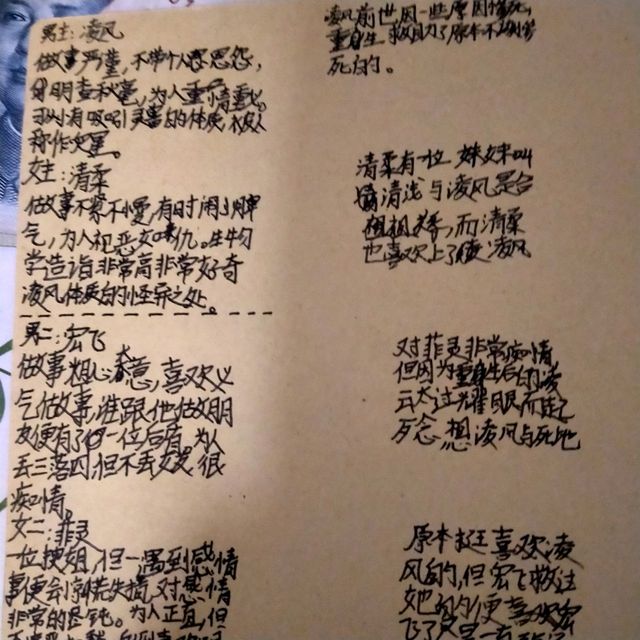 男主：凌风
做事严谨，不带个人恩怨，
明查秋毫，为人重情重义。
身有吸引灵毒的体质,被人
称作灾星。
女主：清柔
做事不紧不慢,有时闹小脾
气，为人视恶如仇。生物
学造诣非常高非常好奇
凌风体质的怪异之处。
男二：宏飞
做事粗心大意，喜欢义
气做事,谁跟他做朋
友便有了一位后盾，为人
丢三落四,但不丢女友,很
痴情。
女二：菲灵
一位搜姐，但一遇到感情
事便会惊慌失措,对感情
非常的迟钝。为人正直,但
凌风前世因一些原因惨死，
重生 救回了原本不该
死的。
清柔有一位 妹妹叫
清浅 与凌风是
而清柔
也喜欢上了 凌风
对菲灵非常痴情
但因为重生后的凌
太过耀眼而起了
歹念 想凌风与死地
原本挺喜欢凌
风的,但宏飞救过
她 便喜欢宏
飞了